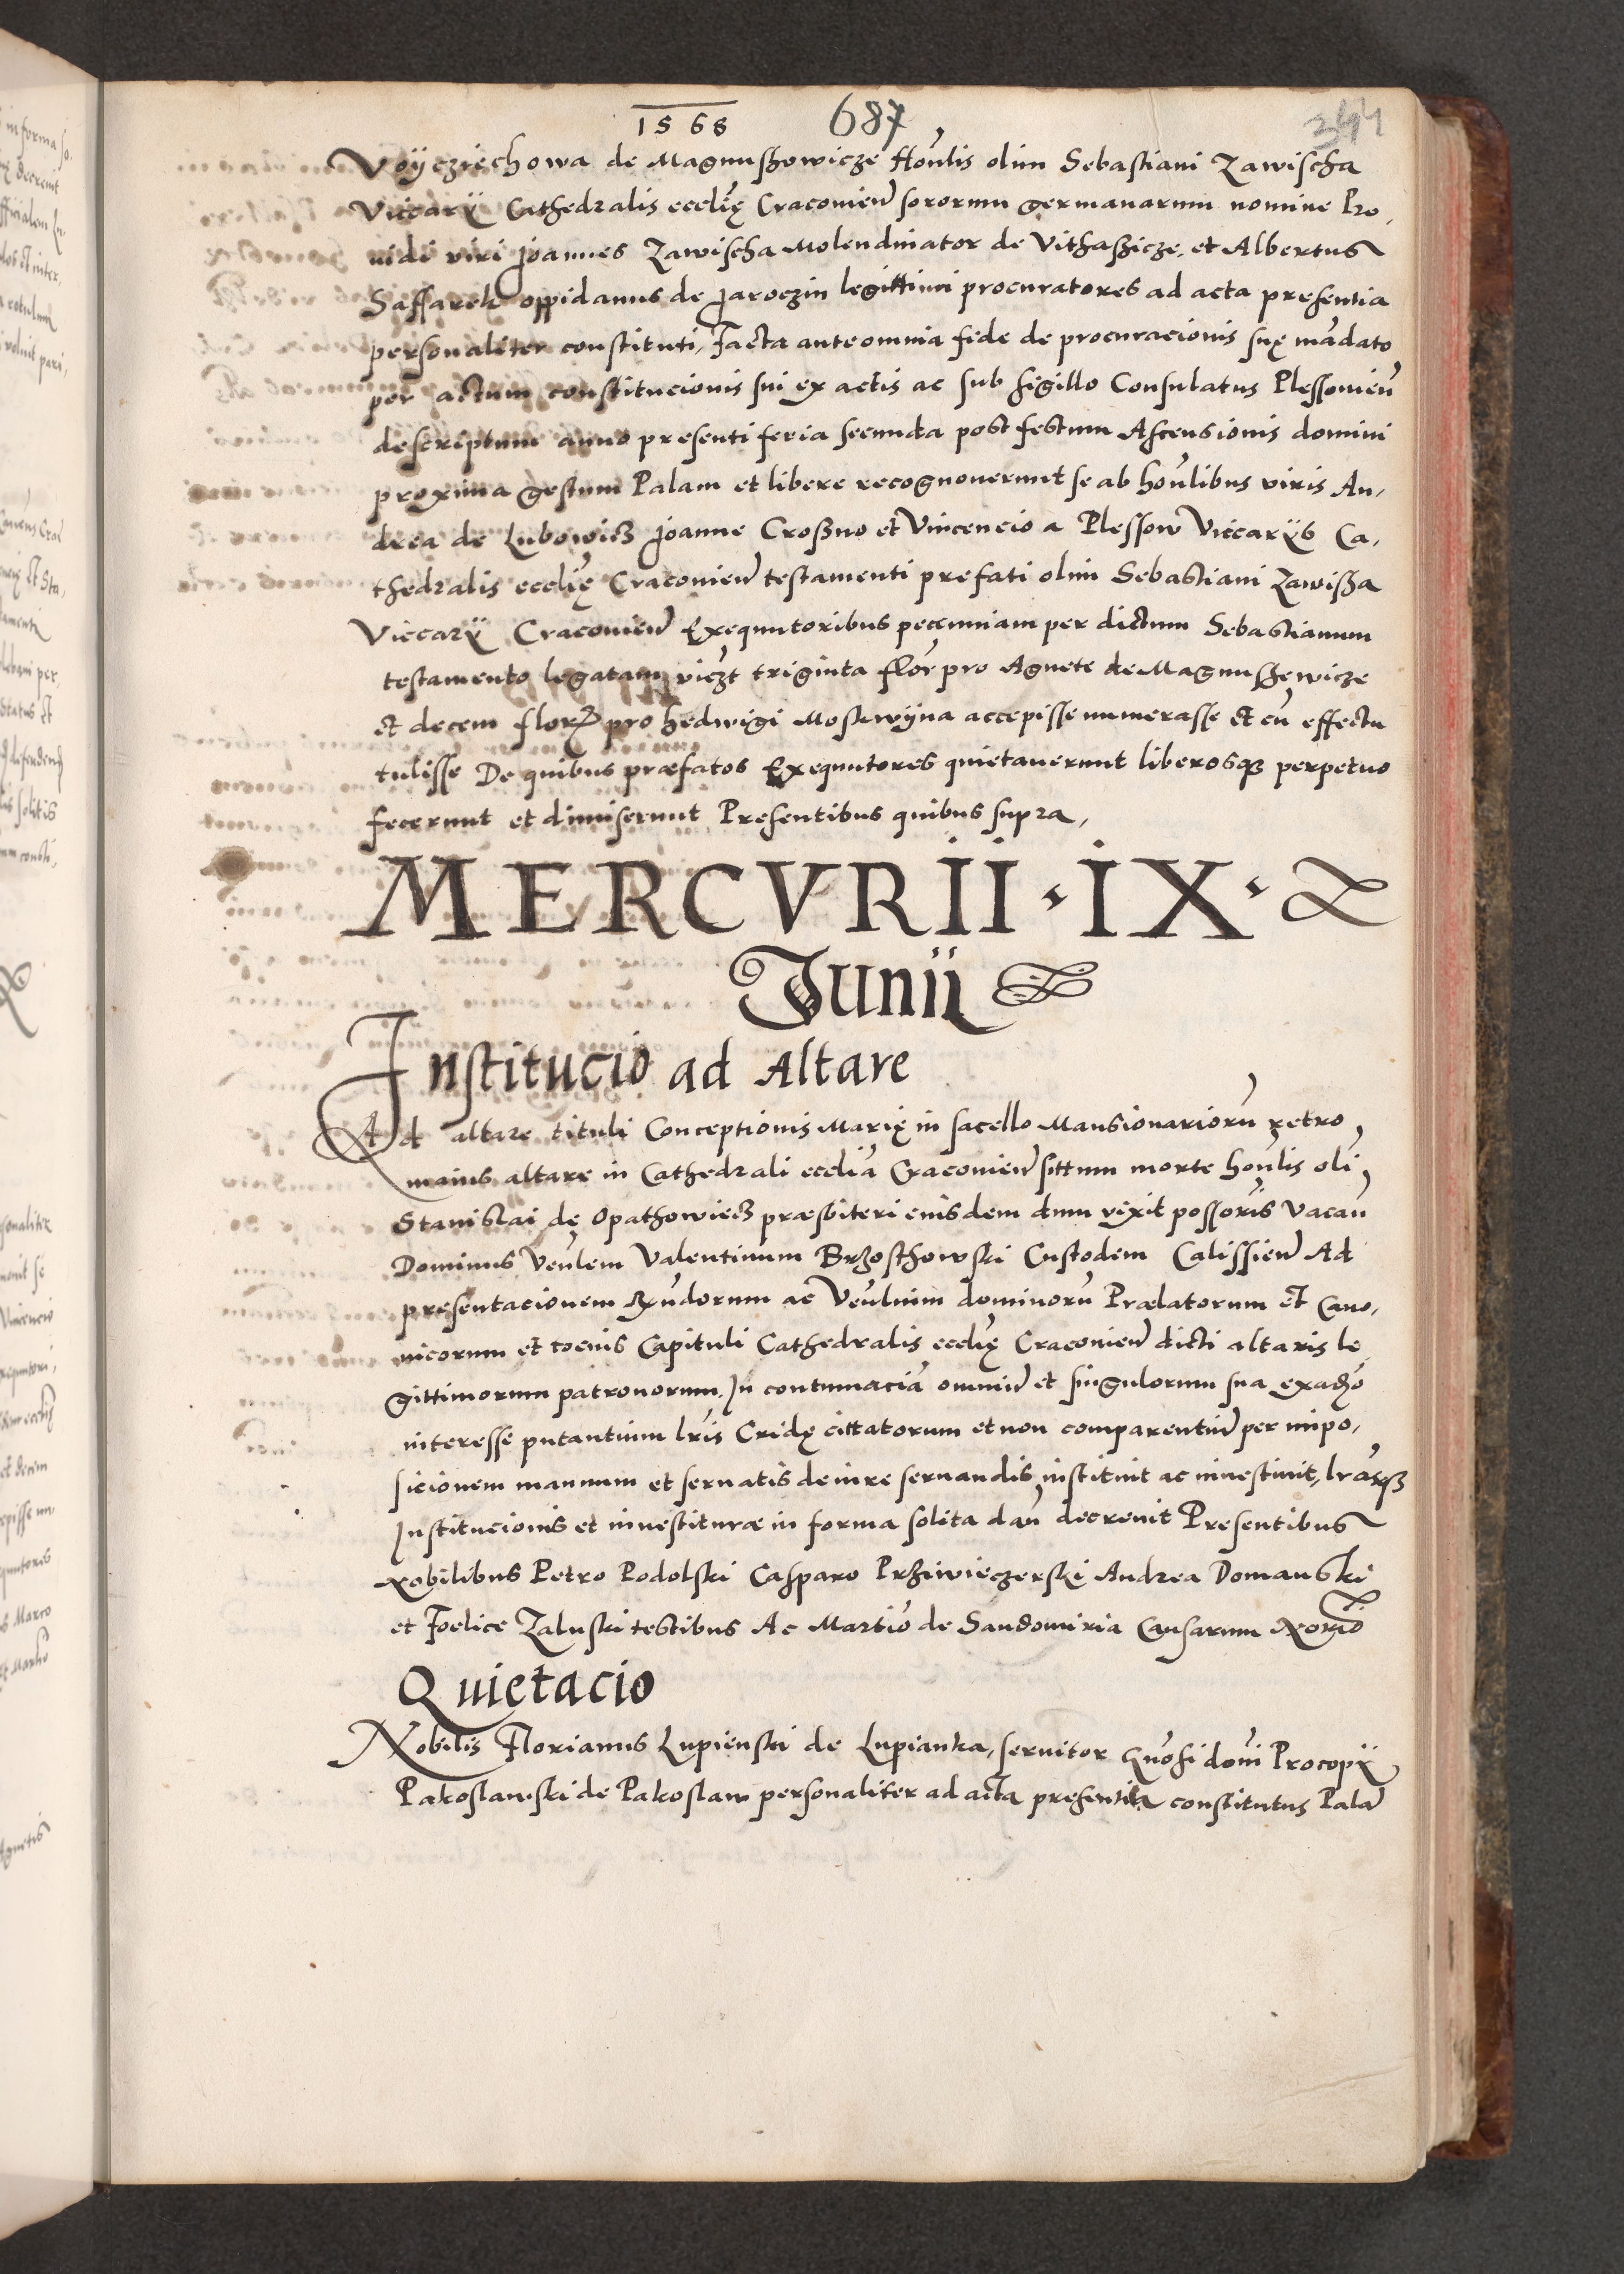 1568 687 344
Voÿcziechowa de Magnuszowicze Hon̄lis olim Sebastiani Zawischa
Viccarÿ Cathedralis eccl̄ię Cracovien̄ sororum germanarum nomine Pro,
uidi viri Joannes Zawischa Molendinator de Vithaszicze, et Albertus
Saffarek oppidanus de Jaroczin legittimi procuratores ad acta presentia
personaliter constituti, Facta ante omnia fide de procuracionis suę mādato
per actum constitucionis sui ex actis ac sub sigillo Consulatus Plessovien̄
descriptum anno presenti feria secunda post festum Ascensionis domini
proxima gestum Palam et libere recognouerunt se ab hon̄libus viris An,
drea de Lubowicz Joanne Croszno et Vincencio a Plessow Viccarÿs Ca,
thedralis eccl̄ię Cracovien̄ testamenti prefati olim Sebastiani Zawisza
Viccarÿ Cracovien̄ Exequutoribus pecuniam per dictum Sebastianum
testamento legatam viczt triginta flor̄ pro Agnete de Magnuszewicze
et decem florꝝ pro Hedwigi Moskwÿna accepisse numerasse et cū effectu
tulisse De quibus præfatos Exequutores quietauerunt liberosqꝫ perpetuo
fecerunt et dimiserunt Presentibus quibus supra,
MERCVRII · IX ·
Junii
Institucio ad Altare
Ad altare tituli Conceptionis Marię in sacello Mansionariorū retro
maius altare in Cathedrali eccl̄ia Cracovien̄ sittum morte hon̄lis oli
Stanislai de Opathowiecz præsbiteri eius dem dum vixit possor̄is Vacan̄
Dominus Ven̄lem Valentinum Brzosthowski Custodem Calissien̄ Ad
presentacionem Rx̄ndorum ac Ven̄lium dominorū Prælatorum et Cano,
nicorum et tocius Capituli Cathedralis eccl̄ię Cracovien̄ dicti altaris le,
gittimorum patronorum. In contumaciā omniū et singulorum sua ex adȟo
interesse putantium lr̄is Cridę cittatorum et non comparentiū per impo,
sicionem manuum et seruatis de iure seruandis instituit ac inuestiuit, lr̄asqꝫ
Institucionis et inuestituræ in forma solita dan̄ decreuit Presentibus
Nobilibus Petro Podolski Casparo Prziwieczerski Andrea Domanski
et Foelice Zaluski testibus Ac Martīo de Sandomiria Causarum Nor̄io
Quietacio
Nobilis Florianus Lupienski de Lupianka, seruitor Gn̄osi don̄i Procopÿ
Pakoslawski de Pakoslaw personaliter ad acta presentia constitutus Palā